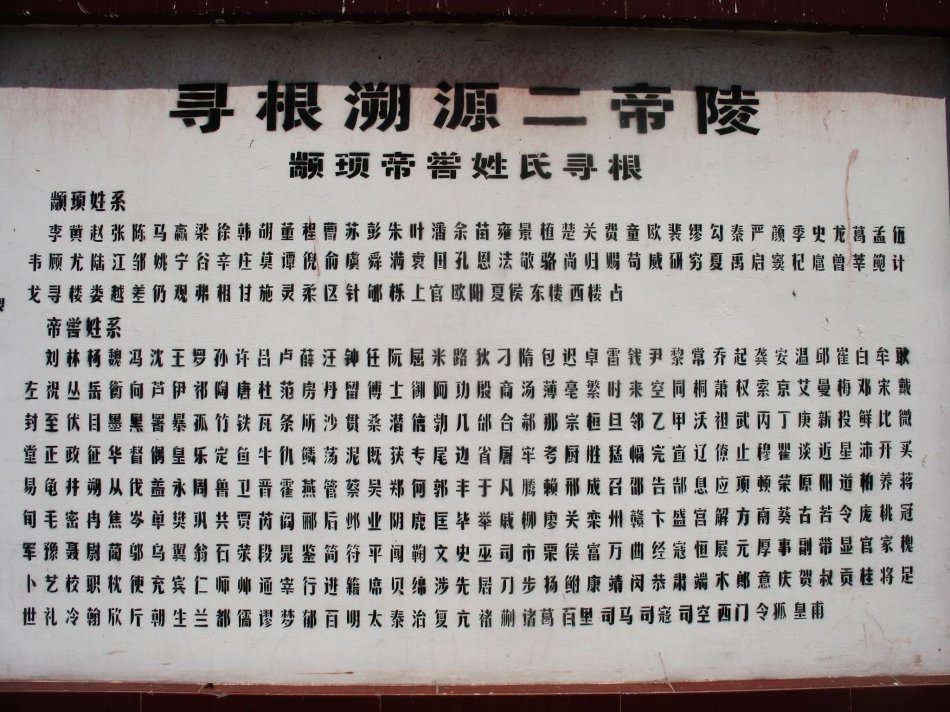 寻根溯源二帝陵
颛顼帝喾姓氏寻根
颛顼姓系
李黄赵张陈马嬴梁徐韩胡董程曹苏彭朱叶潘余苗雍景植楚关费童欧裴缪勾秦严颜季史龙葛孟伍
韦顾尤陆江邹姚宁谷辛庄莫谭倪俞虞舜满袁国孔恩法敬骆尚归赐荀威研穷夏禹启窦杞扈曾莘鲍计
戈寻楼娄越差仍观弗相甘施灵柔区针郇栎上官欧阳夏侯东楼西楼占
帝喾姓系
刘林杨魏冯沈王罗孙许吕卢薛汪钟任阮屈米路狄刁隋包迟卓雷钱尹黎常乔起龚安温邱崔白牟耿
左祝丛岳衡向芦伊祁陶唐杜范房丹留傅士御阿功殷商汤薄亳繁时来空同桐萧权索京艾曼梅邓宋戴
封至伏目墨黑署暴孤竹铁瓦条所沙贯桑潜信勃几邰合郝那宗桓旦邬乙甲沃祖武丙丁庚新投鲜比微
堂正政征华督偶皇乐定鱼牛仇鳞荡泥既获专尾边省屠牢考厨胜猛幅完宣辽僚止穆瞿谈近星沛开买
易龟井朔从伐盖永周鲁卫晋霍燕管蔡吴郑何郭丰于凡腾赖邢成召邵告郜息应项顿荣原阴道柏养蒋
旬毛密冉焦岑单樊巩共贾芮阎郦后邺业阴鹿匡毕举戚柳廖关栾州赣卞盛宫解方南葵古若令庞桃冠
军豫聂尉蔺邬乌翼翁石荣段晁鉴简符平闯鞠文史巫司市栗侯富万曲经寇恒展元厚事副带显官家槐
卜艺校职枕便充宾仁师帅通宰行进籍席贝绵涉先居刀步扬鲋康靖闵恭肃端木郎意庆贺叔贡桂将足
世礼冷翰欣斤朝生兰都儒谬梦郁百明太泰治复亢褚蒯诸葛百里司马司寇司空西门令狐皇甫